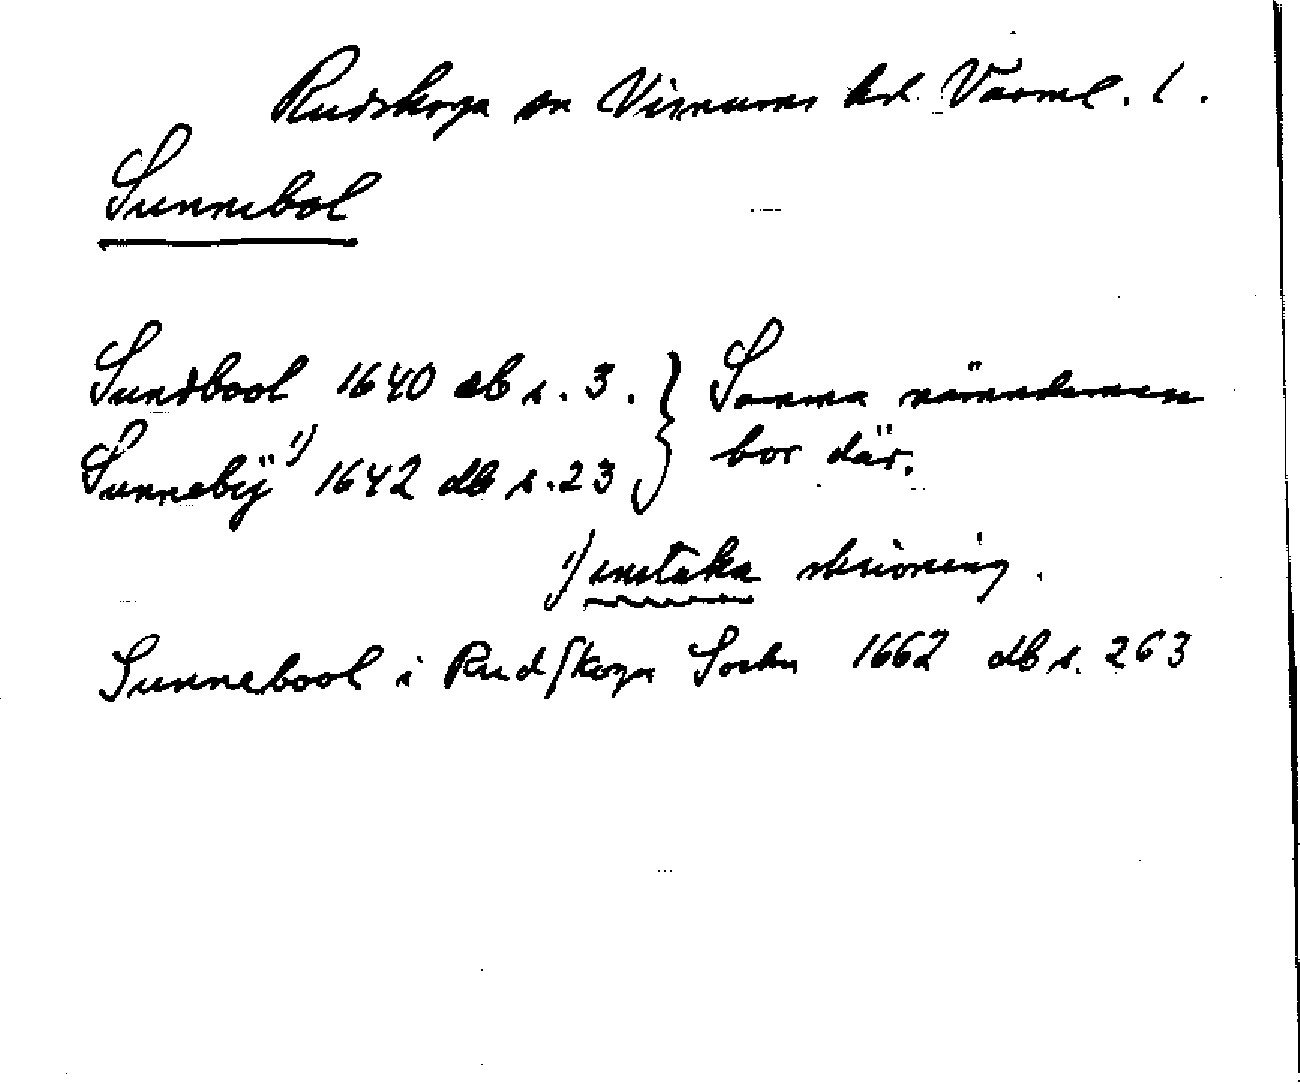 Rudskoga sn Visnums hd. Värml. l.
Sunnebol
Sundbool 1640 db s. 3. } Samma nämndeman
Sunnebÿ 1) 1642 db s. 23 } bor där.
1) enstaka skrivning.
Sunnebool i Rudſkoga Sochn 1662 db s. 263